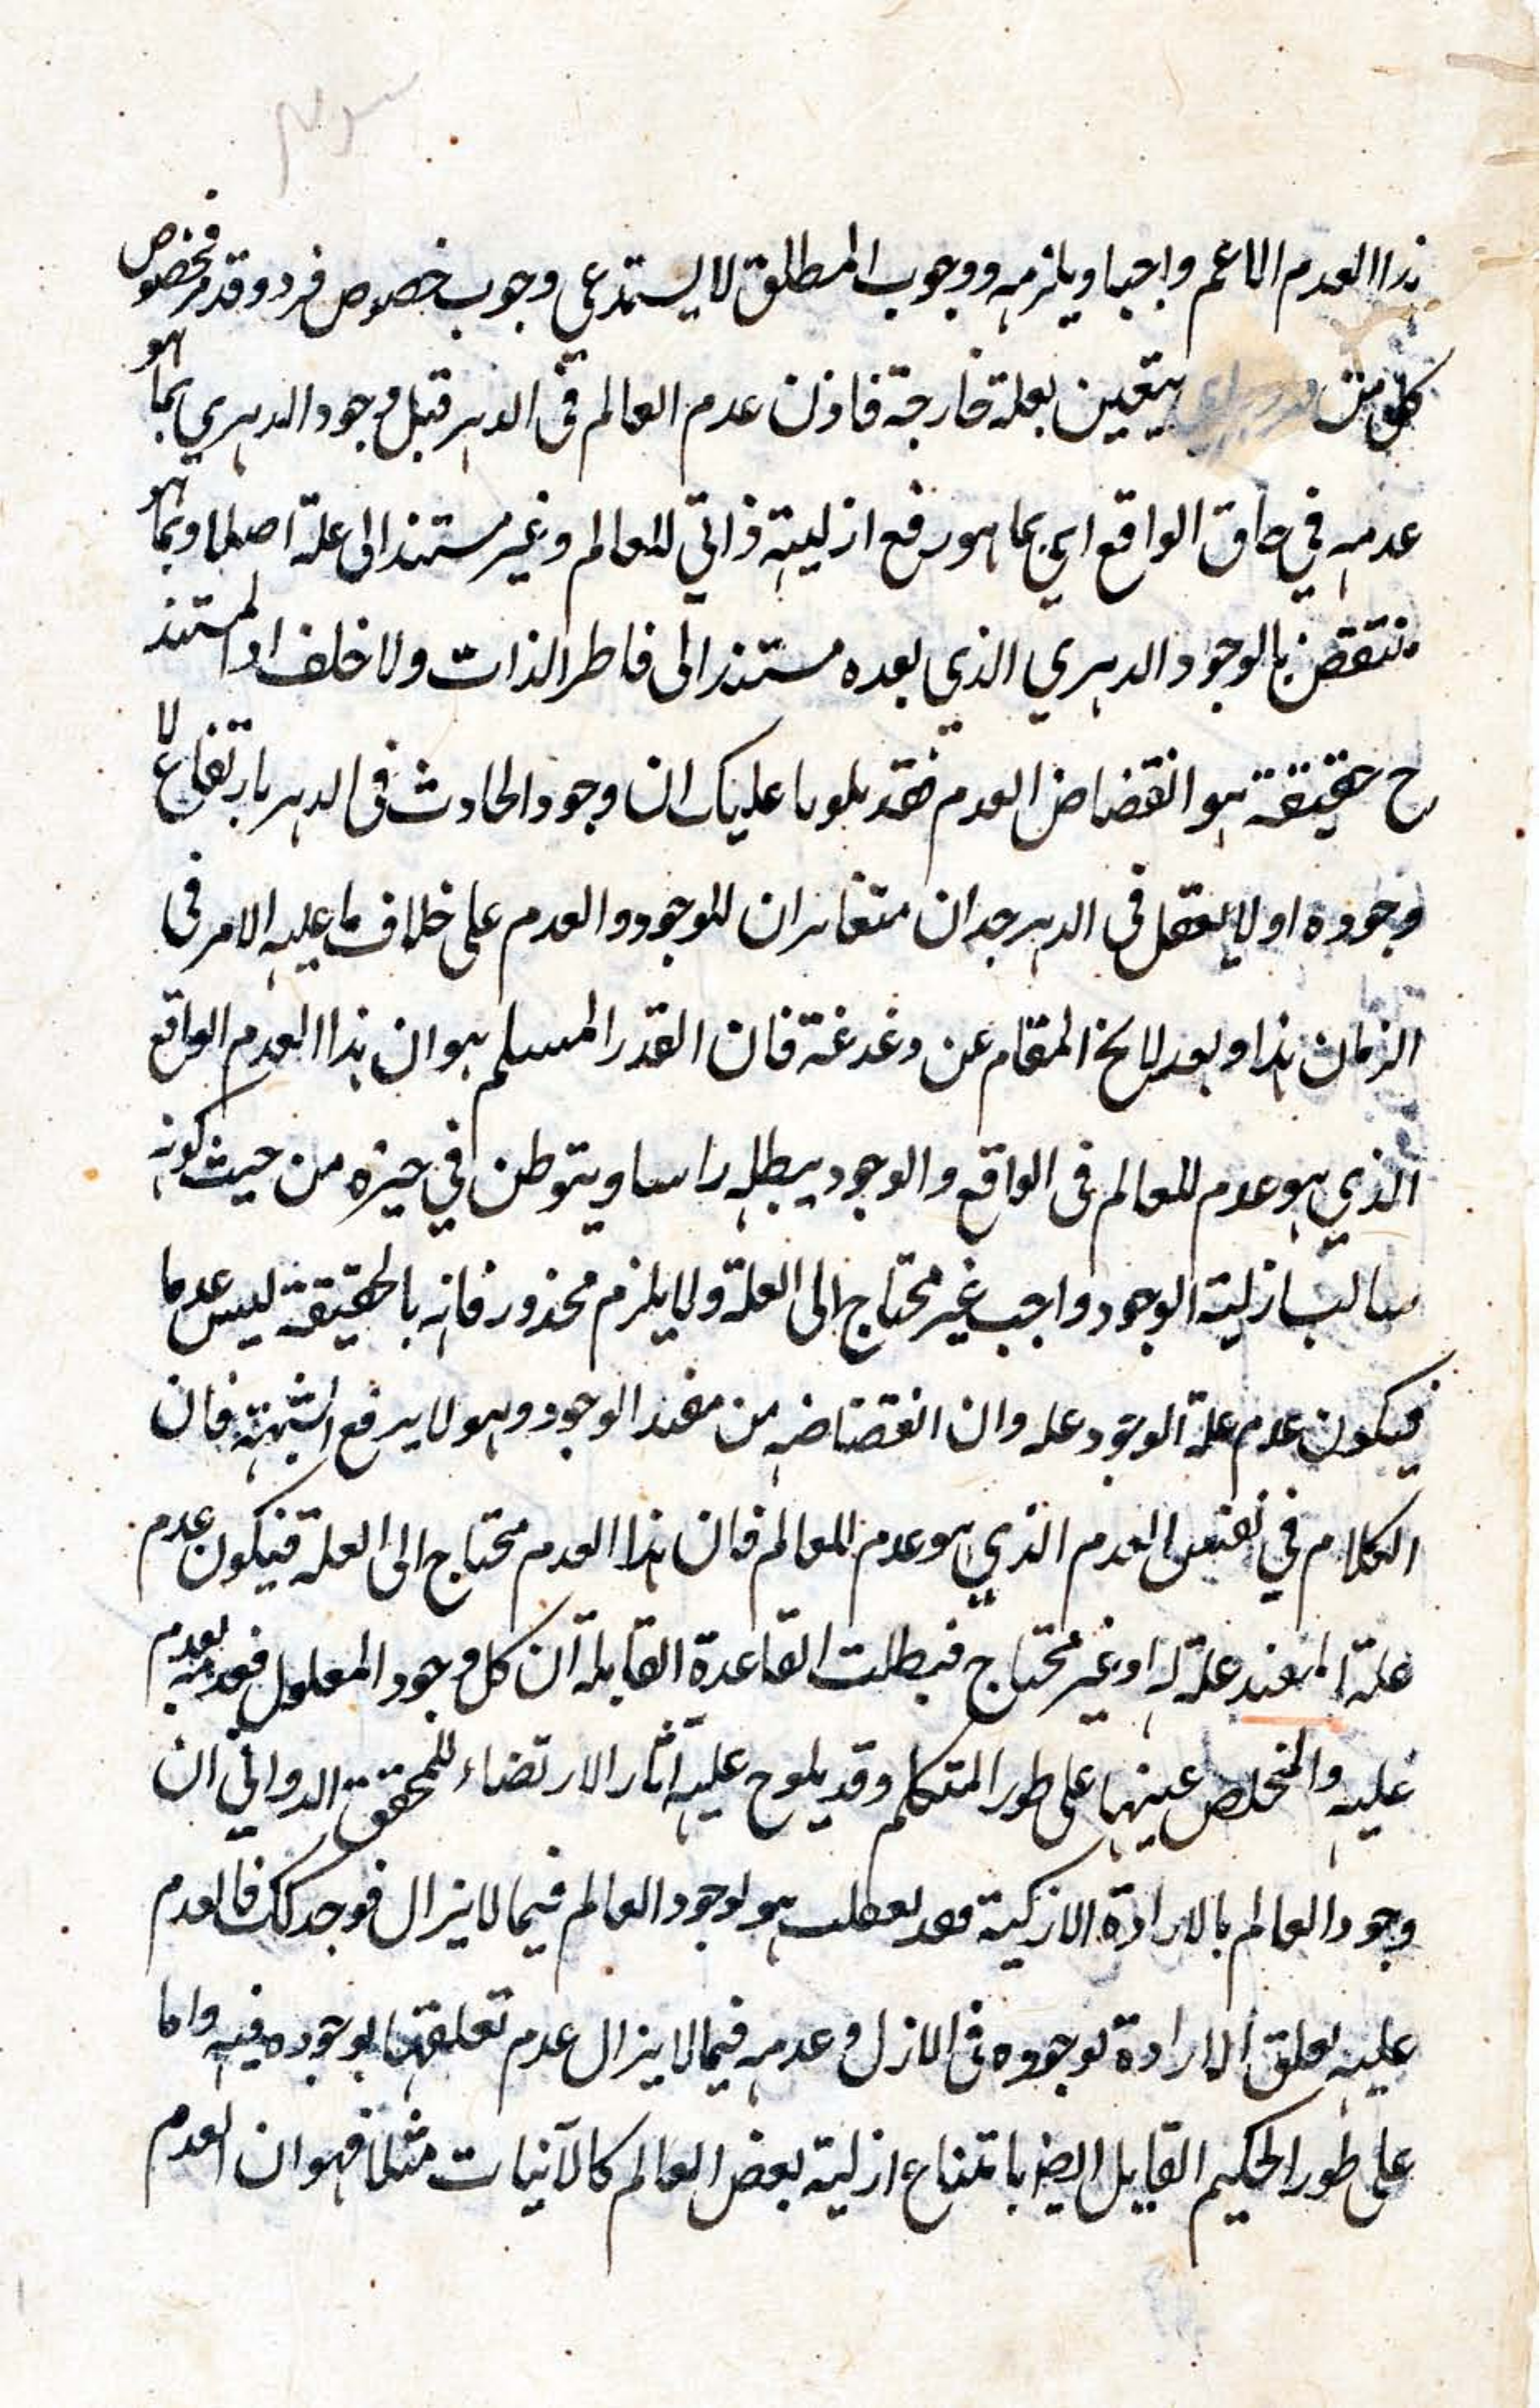 هذا العدم الاعم واجبا ويلزمه ووجوب المطلق لا يستدعي وجوب خصوص فرد وقد مر فخصوص
كل من يتعين بعلة خارجة فاذن عدم العالم فى الدهر قبل وجود الدهري بما هو
عدمه في حاق الواقع اي بما هو رفع ازليته ذاتي للعالم وغير مستند الى علة اصلا وبما هو
منتقض بالوجود الدهري الذي بعده مستند الى فاطر الذات ولا خلف اذ المستند
ح حقيقة هو انتقضاض العدم فقد علیک ان وجود الحادث فى الدهر بارتفاع لا
وجوده اولا يعقل فى الدهر حدان متغايران للوجود والعدم على خلاف ما عليه الامر فى
الزمان هذا وبعد لا يخ المقام عن دغدغة فان القدر المسلم هو ان هذا العدم الواقع
الذي هو عدم للعالم فى الواقع والوجود يبطله راسا ويتوطن في حيزه من حيث كونه
سالب ازلية الوجود واجب غير محتاج الى العلة ولا يلزم محذور فانه بالحقيقة ليس عدما
فيكون عدم علة الوجود علہ وان انتقضاضه من الوجود وهو لا يرفع الشبهة فان
الكلام في نفس العدم الذي هو عدم العالم فان هذا العدم محتاج الى العلة فيكون عدم
علة علة له او غير محتاج فبطلت القاعدة القايلة ان كل وجود المعلول فعدمه بعدم
عليه والمخلص عنها على طور المتكلم وقد يلوح عليه آثار الارتضاء للمحقق الدواني ان
وجود العالم بالارادة الازلية هو لوجود العالم فيما لا يزال فوجد كك فالعدم
عليه تعلق الارادة لوجوده فى الازل وعدمه فيما لا يزال عدم تعلقها بوجوده فيه واما
على طور الحكيم القايل ايضا بامتناع ازلية بعض العالم كالآنيات مثلا فهو ان العدم